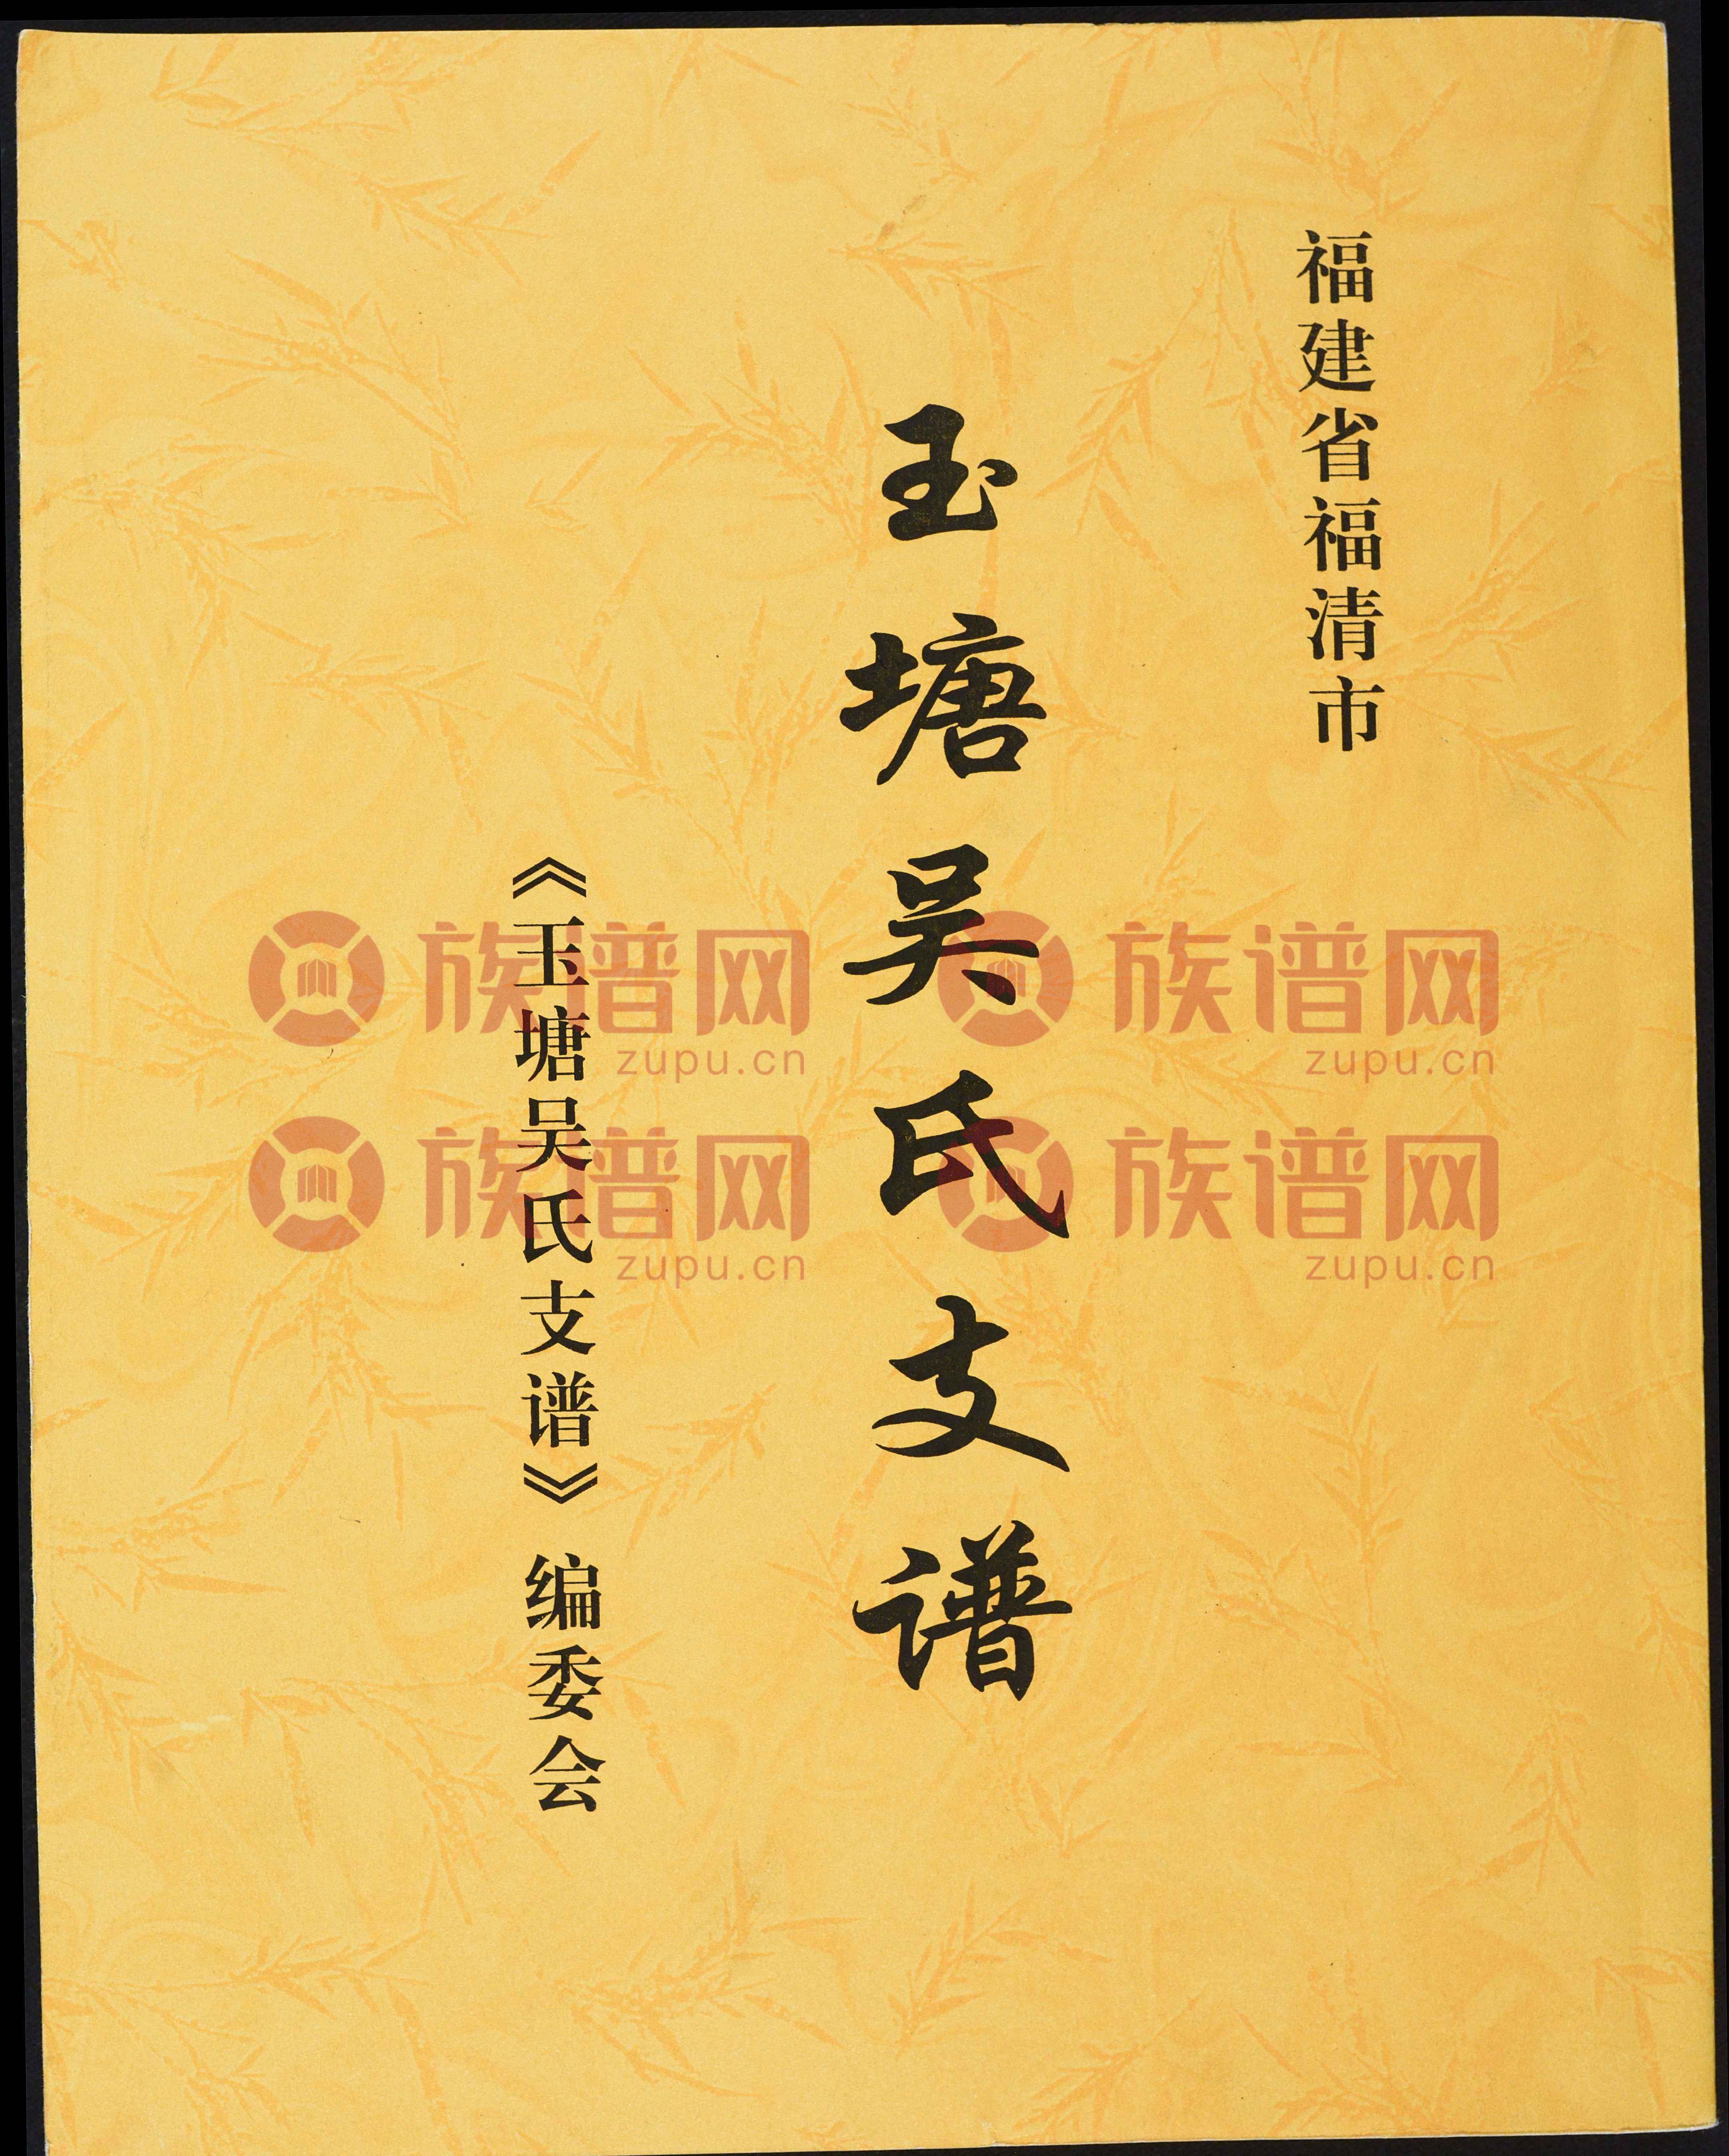 福建省福清市
玉塘吴氏支谱
《玉塘吴氏支谱》编委会
族谱网
zupu.cn
族谱网
zupu.cn
族谱网
zupu.cn
族谱网
zupu.cn